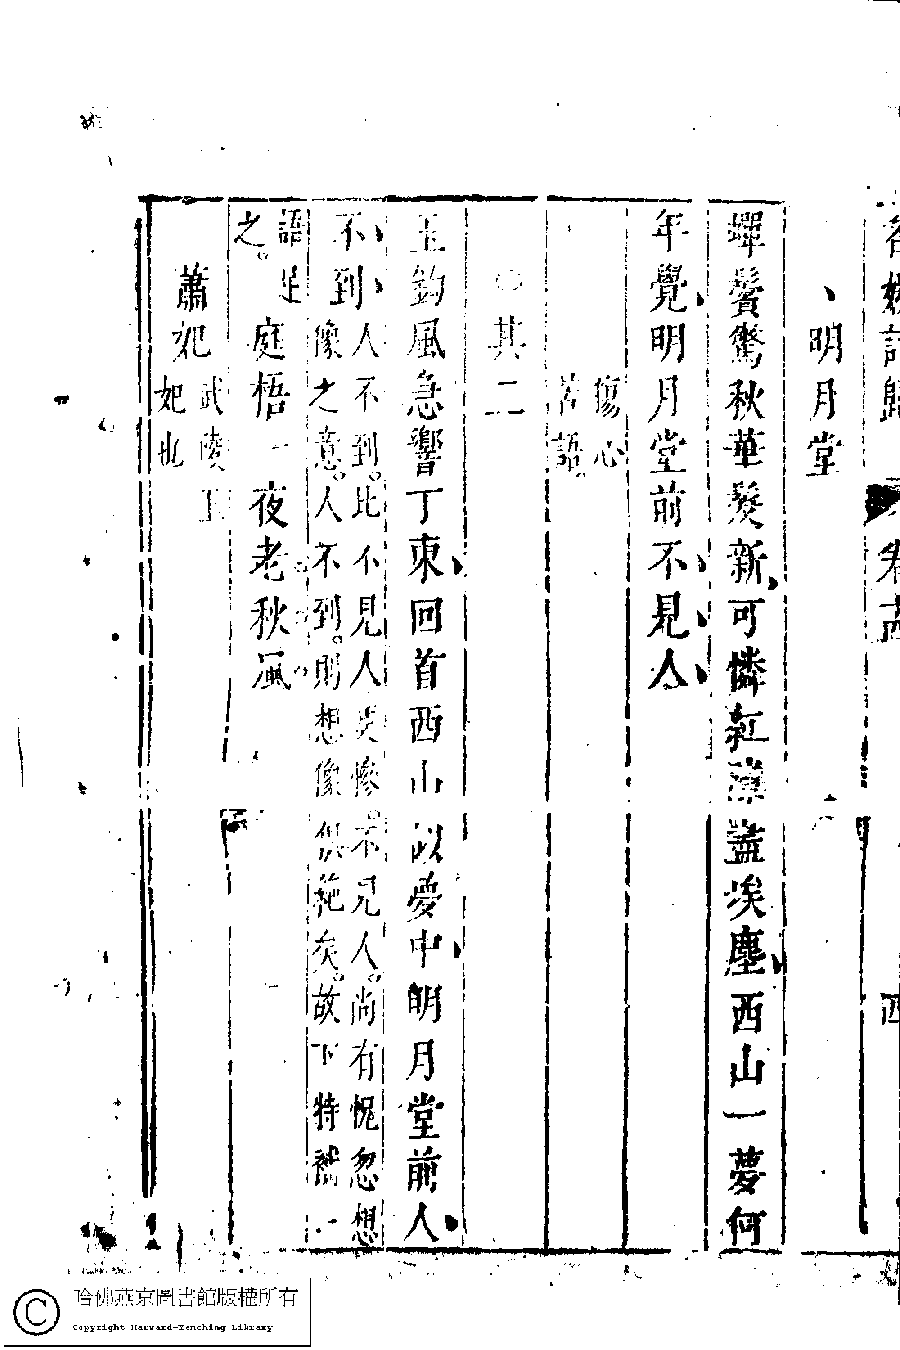 名媛詩歸 卷古 四
明月堂
蟬鬢驚秋華髮新可憐紅瀆盡埃塵西山一夢何
年覺明月堂前不見人
傷心
苦語
其二
玉鉤風急響丁東回首西山似夢中明月堂前人
不到人不到比不見人更慘不見人尚有怳忽想
像之意人不到則想像俱絕矣故下特補一
語足
之庭梧一夜老秋風
蕭妃武陵王
妃也
哈佛燕京圖書館版權所有
Copyright Harvard-Yenching Library